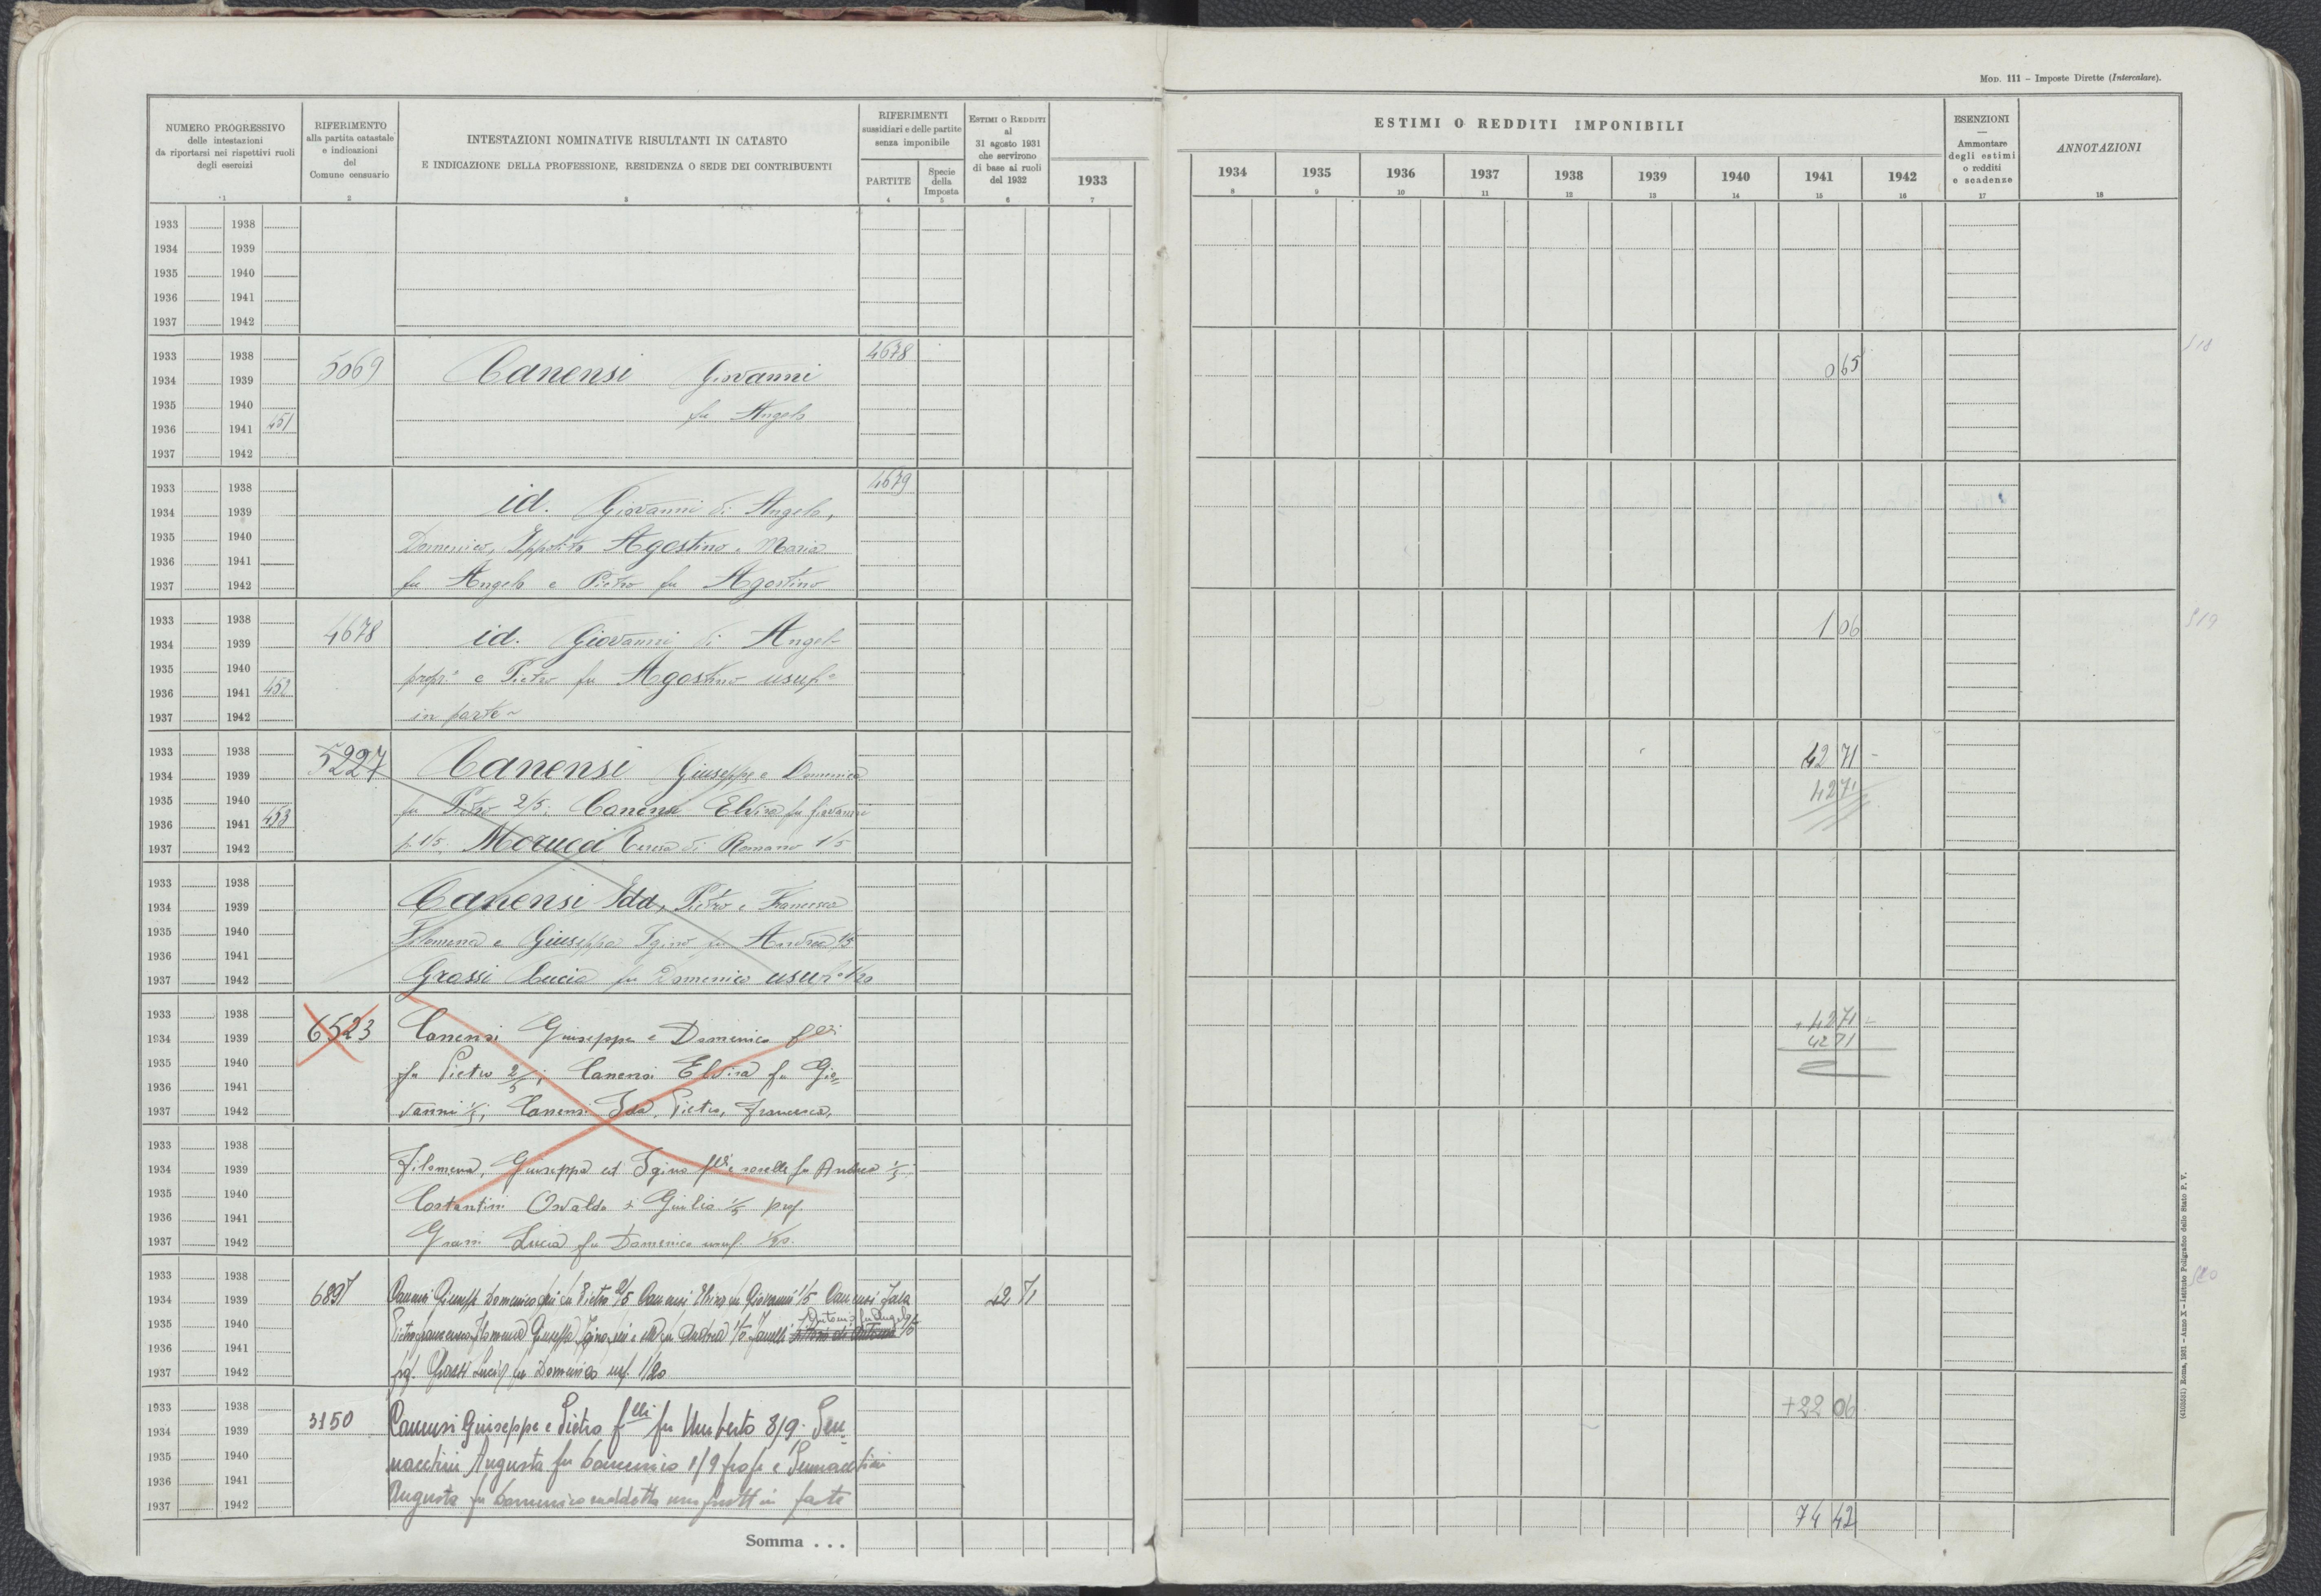 MOD. 111 – Imposte Dirette (Intercalare).
NUMERO PROGRESSIVO
delle intestazioni
da riportarsi nei rispettivi ruoli
degli esercizi
1
RIFERIMENTO
alla partita catastale
e indicazioni
del
Comune censuario
2
INTESTAZIONI NOMINATIVE RISULTANTI IN CATASTO
E INDICAZIONE DELLA PROFESSIONE, RESIDENZA O SEDE DEI CONTRIBUENTI
3
RIFERIMENTI
sussidiari e delle partite
senza imponibile
PARTITE
4
Specie
della
Imposta
5
ESTIMI O REDDITI
al
31 agosto 1931
che servirono
di base ai ruoli
del 1932
6
1933
7
ESTIMI O REDDITI IMPONIBILI
1934 1935 1936 1937 1938 1939 1940 1941 1942
8 9 10 11 12 13 14 15 16
ESENZIONI
—
Ammontare
degli estimi
o redditi
e scadenze
17
ANNOTAZIONI
18
1933 1938
1934 1939
1935 1940
1936 1941
1937 1942
1933 1938 4678
1934 1939 5069 Canensi Giovanni 0 65
1935 1940 fu Angelo
1936 1941 451
1937 1942
1933 1938 4679
1934 1939 id. Giovanni di Angelo,
1935 1940 Domenico, Ippolito Agostino e Maria
1936 1941
1937 1942 fu Angelo e Pietro fu Agostino
1933 1938 4678 1 06 519
1934 1939 id. Giovanni di Angelo
1935 1940 propr° e Pietro fu Agostino usuf°
1936 1941 452
1937 1942 in parte
1933 1938 5227 Canensi Giuseppe e Domenico 42 71 -
1934 1939
1935 1940 fu Pietro 2/5. Canensi Elvira fu Giovanni 42 71
1936 1941 453
1937 1942 p. 1/5. Morucci Teresa di Romano 1/5
1933 1938
1934 1939 Canensi Ida, Pietro e Francesca
1935 1940 Filomena e Giuseppa Igino fu Andrea 1/5
1936 1941
1937 1942 Grassi Lucia fu Domenico usuf° 1/20
1933 1938 6523 Canensi Giuseppe e Domenico flli + 42 71 -
1934 1939 42 71
1935 1940 fu Pietro 2/5; Canensi Elvira fu Gio=
1936 1941
1937 1942 vanni 1/5; Canensi Ida, Pietro, Francesca,
1933 1938
1934 1939 Filomena, Giuseppa ed Igino flli e sorelle fu Andrea 1/5
1935 1940 Costantini Osvaldo di Giulio 1/5 prop.
1936 1941
1937 1942 Grassi Lucia fu Domenico usuf. 1/20.
1933 1938
1934 1939 6897 Canensi Giuseppe Domenico flli fu Pietro 2/5 Canensi Elvira fu Giovanni 1/5 Canensi 42 71
Antonio fu Angelo
1935 1940 Pietro Francesca Filomena Giuseppa Igino fu Andrea 1/5
1936 1941
1937 1942 Grassi Lucia fu Domenico usf. 1/20
1933 1938 +22 06
1934 1939 3150 Canensi Giuseppe e Pietro flli fu Umberto 8/9. Sen=
1935 1940 nacchini Augusta fu Domenico 1/9 prop e Sennacchini
1936 1941
1937 1942 Augusta fu Domenico usufrutt in parte
74 42
Somma . . .
(4102651) Roma, 1931 – Anno X – Istituto Poligrafico dello Stato P. V.